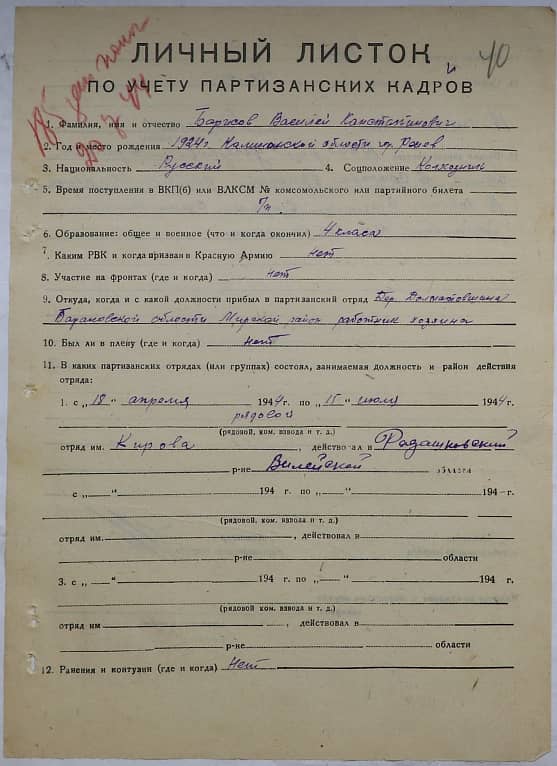 40
ЛИЧНЫЙ ЛИСТОК
ПО УЧЕТУ ПАРТИЗАНСКИХ КАДРОВ
1. Фамилия, имя и отчество Борисов Василей Константинович
2. Год и место рождения 1924 г. Калининской области гор. Ржев
3. Национальность Русский 4. Соцположение Колхозник
5. Время поступления в ВКП(б) или ВЛКСМ № комсомольского или партийного билета
б/п.
6. Образование: общее и военное (что и когда окончил) 4 класса
7. Каким РВК и когда призван в Красную Армию нет
8. Участие на фронтах (где и когда) нет
9. Откуда, когда и с какой должности прибыл в партизанский отряд Дер.
Барановской области Мирский район работник хозяина
10. Был ли в плену (где и когда) нет
11. В каких партизанских отрядах (или группах) состоял, занимаемая должность и район действия
отряда:
1. с „18“ апреля 1944 г. по „15“ июля 1944 г.
рядовой
(рядовой, ком. взвода и т. д.)
отряд им. Кирова, действовал в Радашковский
р-не Вилейской области
с „ “ 194 г. по „ “ 194 г.
(рядовой, ком. взвода и т. д.)
отряд им. , действовал в
р-не области
3. с „ “ 194 г. по „ “ 194 г.
(рядовой, ком. взвода и т. д.)
отряд им , действовал в
р-не области
12. Ранения и контузии (где и когда) Нет